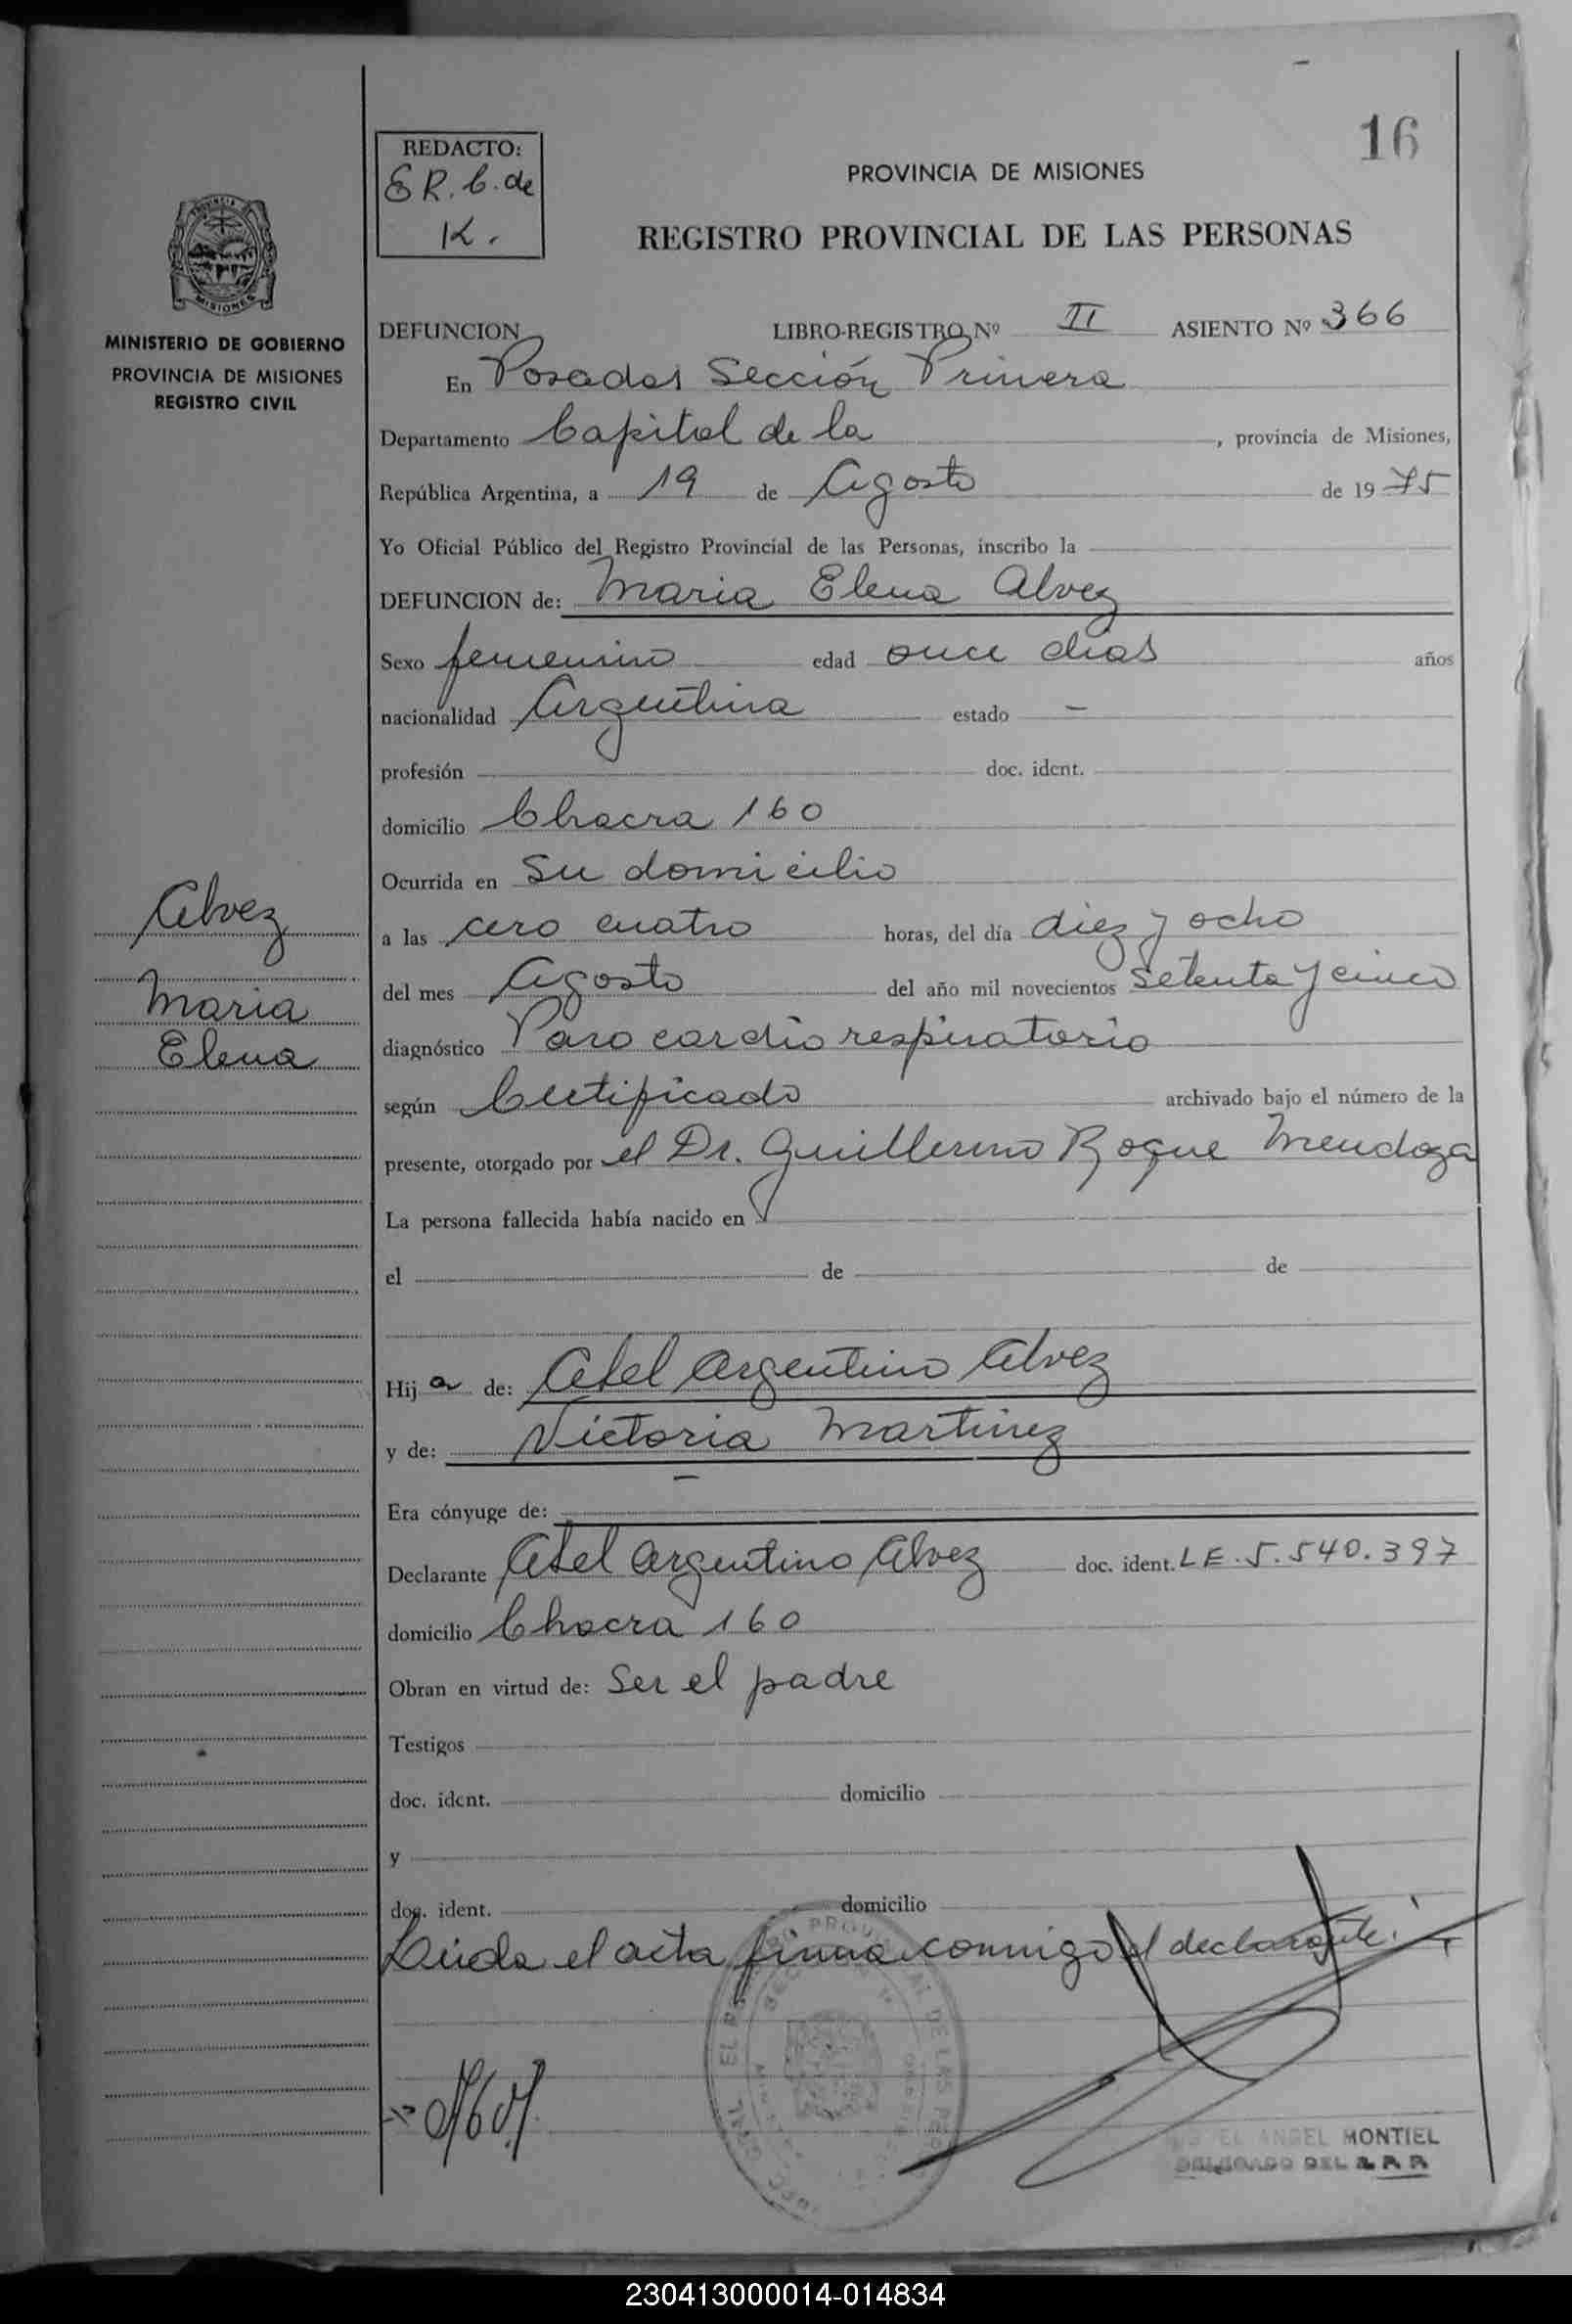 16
REDACTO:
E R. C. de
K.
PROVINCIA DE MISIONES
REGISTRO PROVINCIAL DE LAS PERSONAS
MISIONES
MINISTERIO DE GOBIERNO
PROVINCIA DE MISIONES
REGISTRO CIVIL
DEFUNCION LIBRO-REGISTRO Nº II ASIENTO Nº 366
En Posadas Sección Primera
Departamento Capital de la , provincia de Misiones,
República Argentina, a 19 de Agosto de 1975
Yo Oficial Público del Registro Provincial de las Personas, inscribo la
DEFUNCION de: Maria Elena Alvez
Sexo femenino edad once dias años
nacionalidad Argentina estado –
profesión doc. ident.
domicilio Chacra 160
Ocurrida en Su domicilio
a las cero cuatro horas, del día diez y ocho
del mes Agosto del año mil novecientos Setenta y cinco
diagnóstico Paro cardio respiratorio
según Certificado archivado bajo el número de la
presente, otorgado por el Dr. Guillermo Roque Mendoza
La persona fallecida había nacido en
el de de
Hija de: Abel Argentino Alvez
y de: Victoria Martinez
Era cónyuge de:
Declarante Abel Argentino Alvez doc. ident. L E. 5.540.397
domicilio Chacra 160
Obran en virtud de: Ser el padre
Testigos
doc. ident. domicilio
y
doc. ident. domicilio
Leida el acta firma conmigo el declarante.
Alvez
Maria
Elena
ANGEL MONTIEL
DELEGADO DEL R.P.P.
230413000014-014834